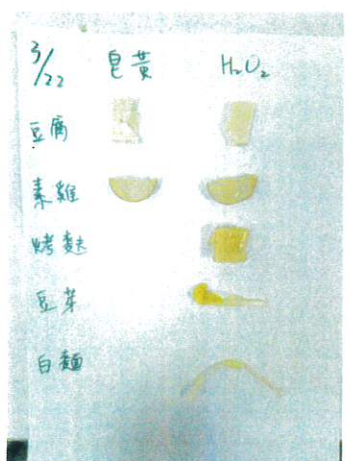 3/22 皂黃 H₂O₂
豆腐
素雞
烤麩
豆芽
白麵